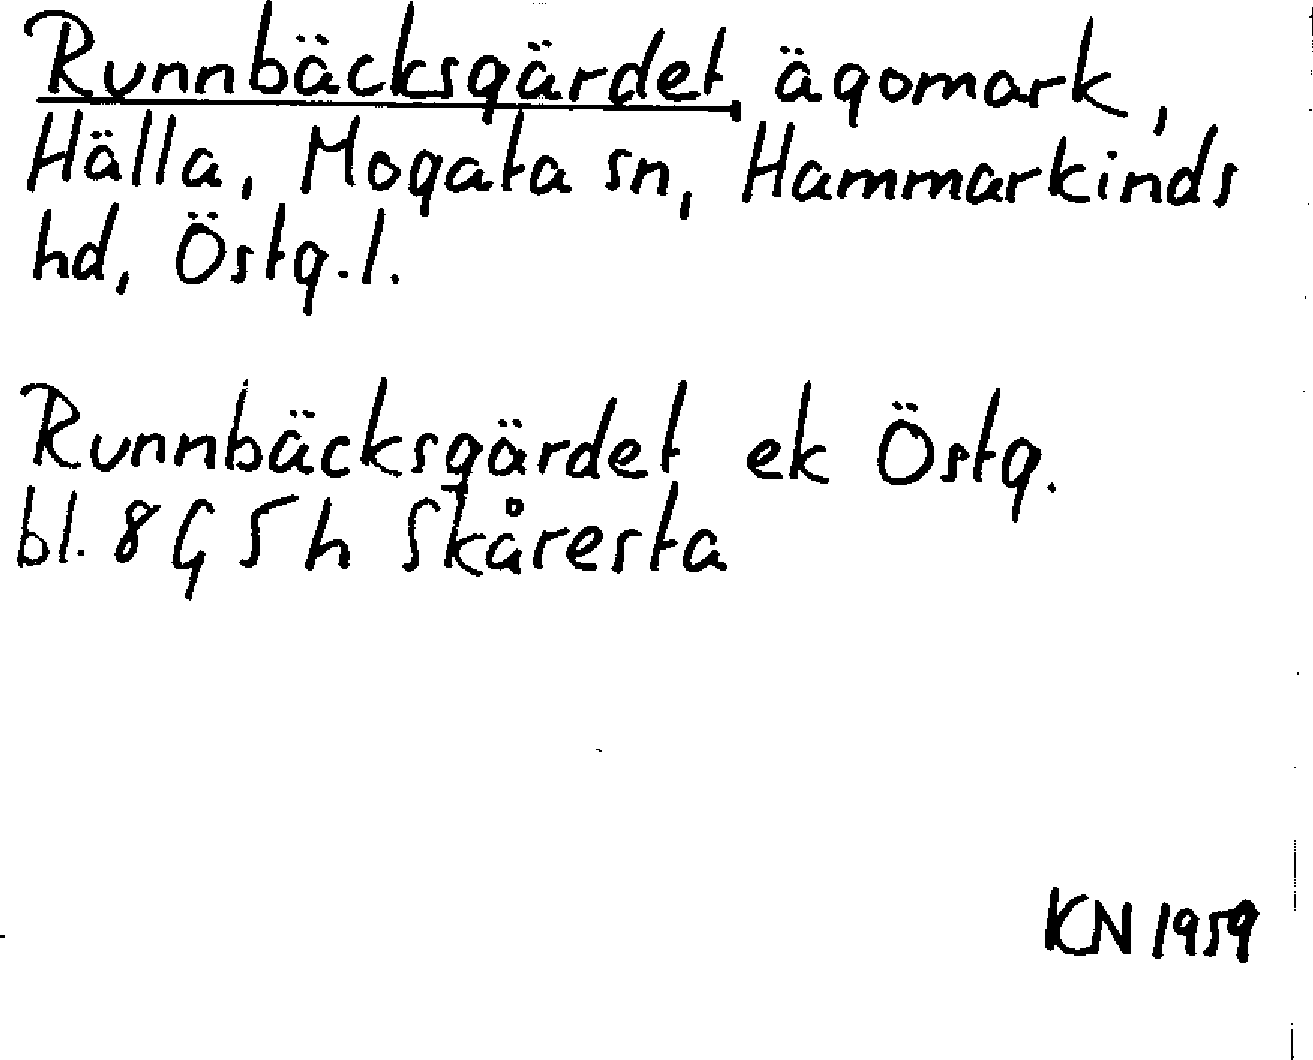 Runnbäcksgärdet, ägomark,
Hälla, Mogata sn, Hammarkinds
hd, Östg.l.
Runnbäcksgärdet ek Östg.
bl. 8G5h Skåresta
KN 1959